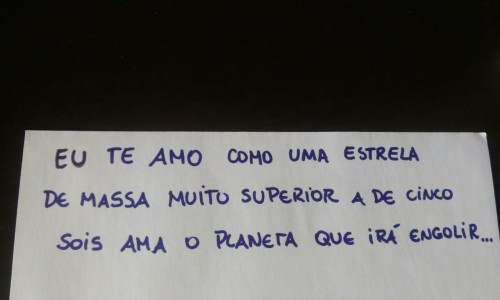 EU TE AMO COMO UMA ESTRELA
DE MASSA MUITO SUPERIOR A DE CINCO
SOIS AMA O PLANETA QUE IRÁ ENGOLIR...